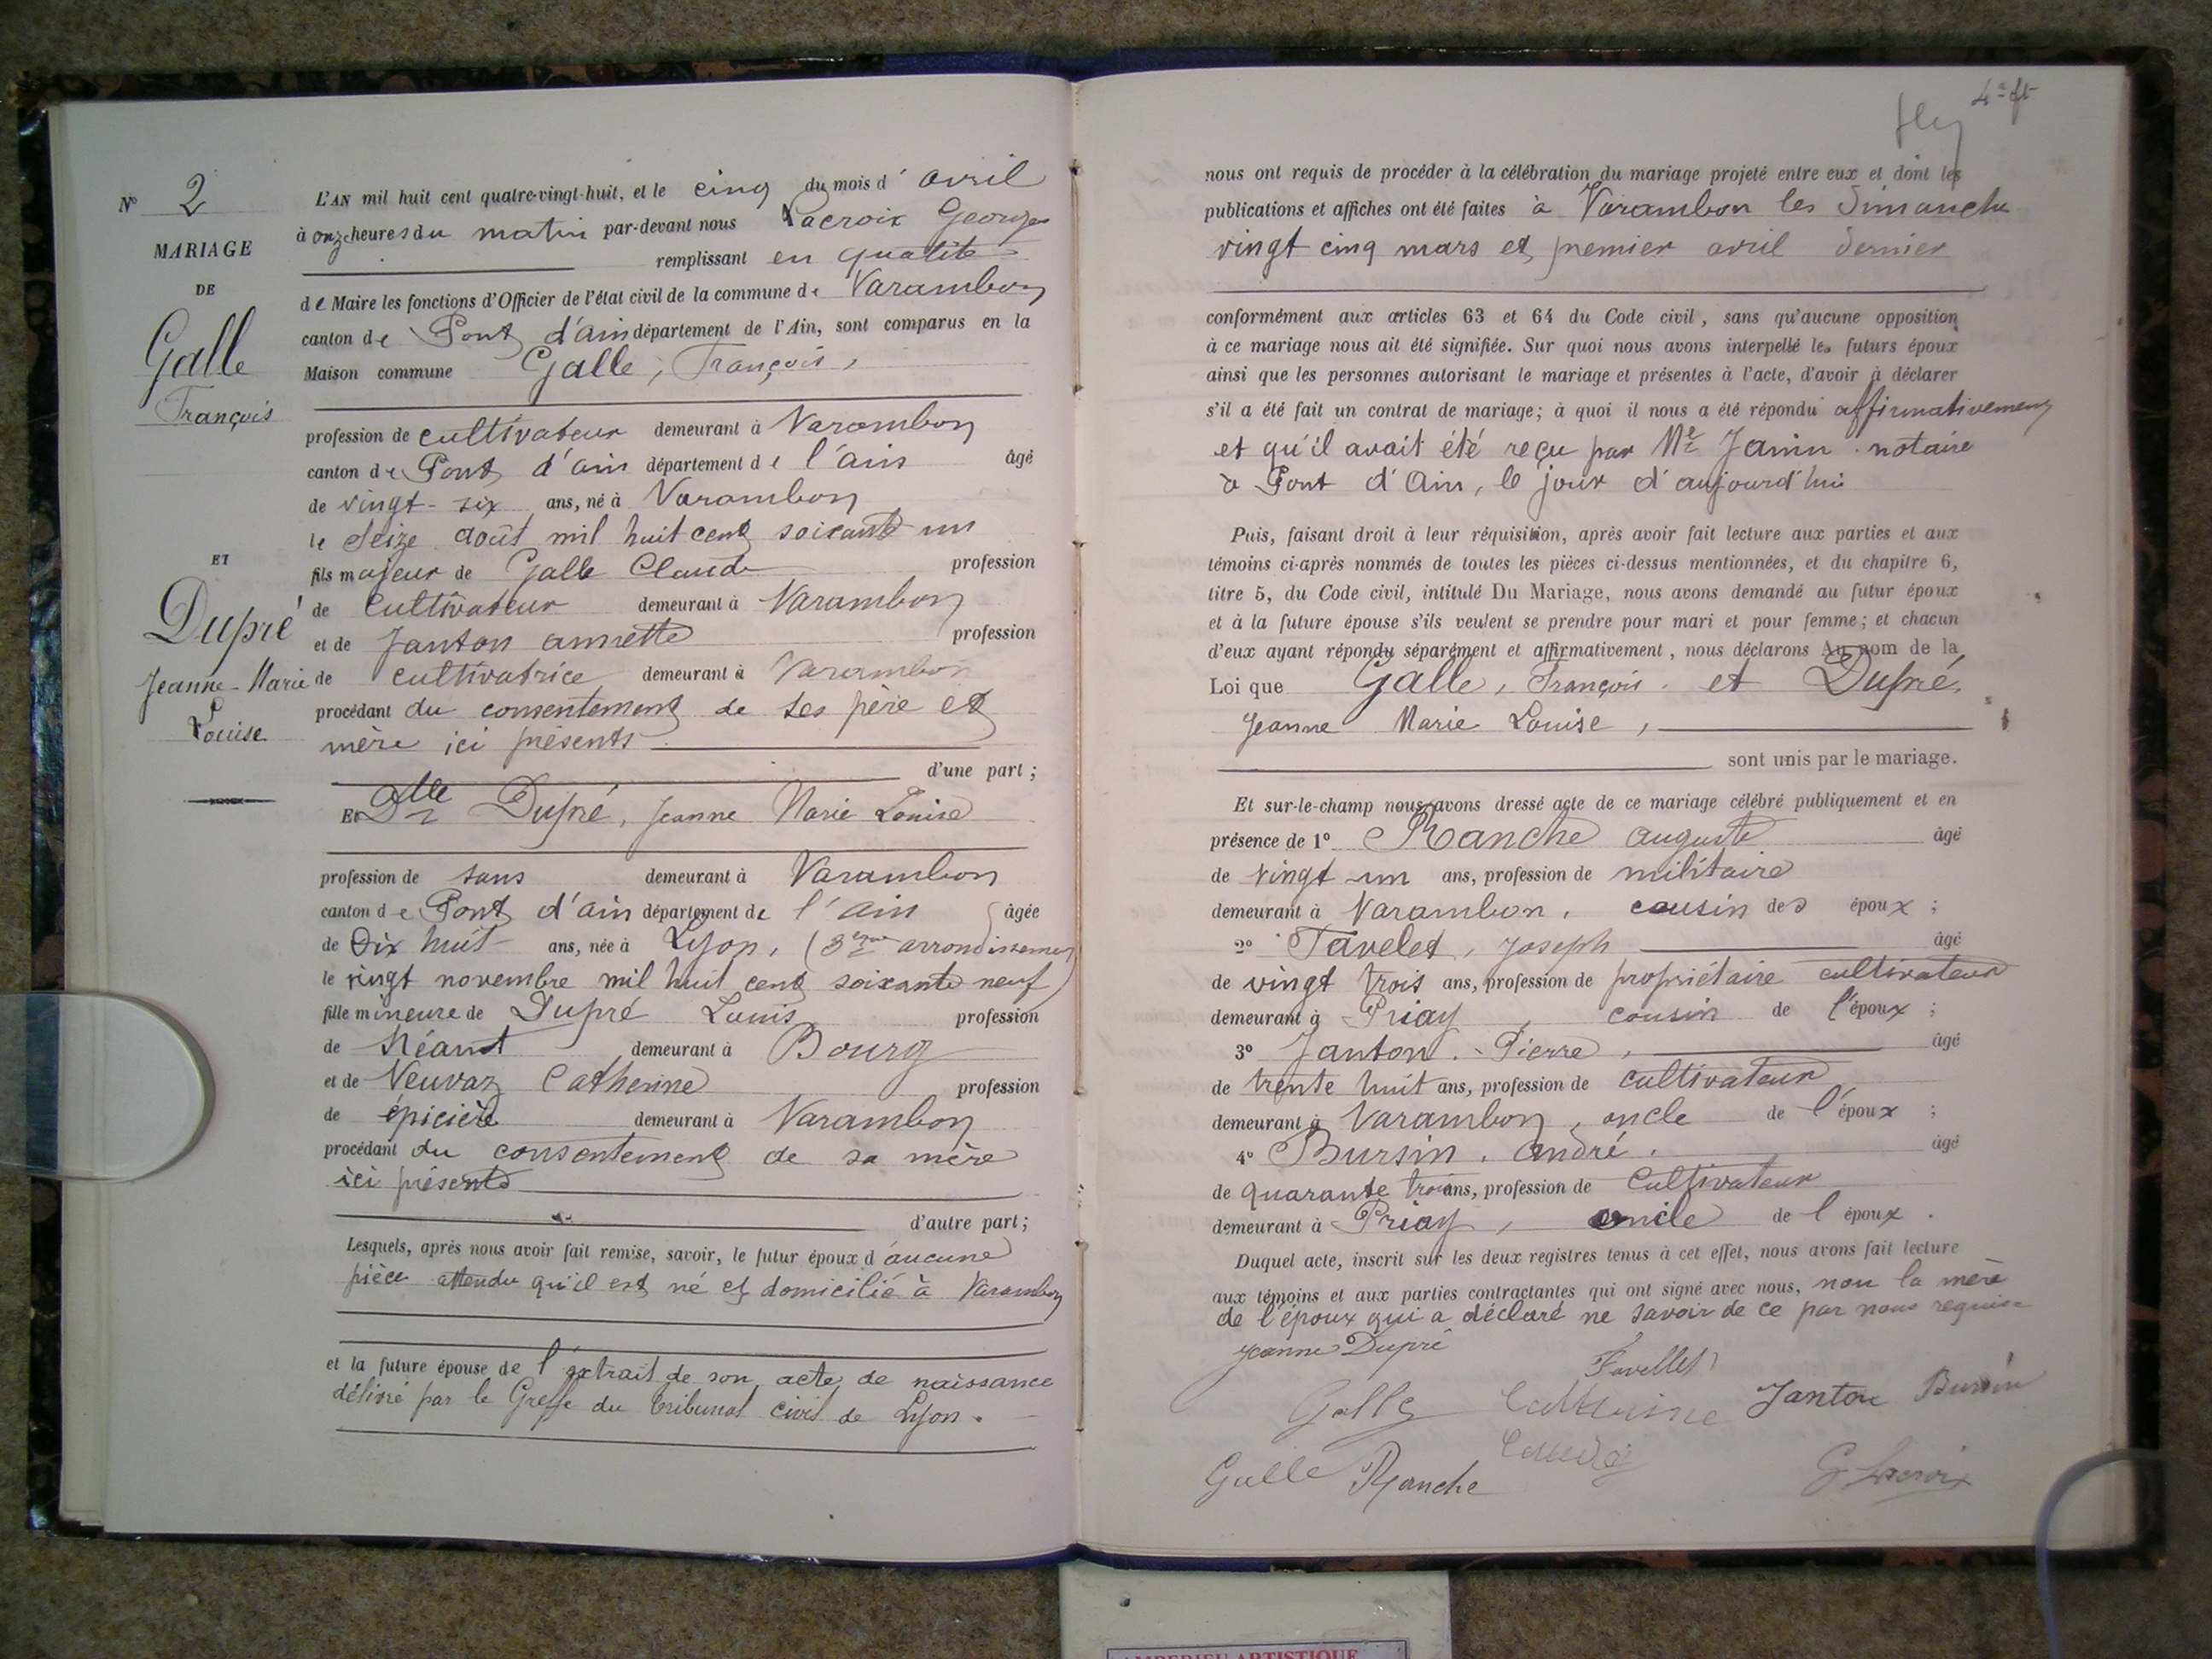 N° 2
MARIAGE
DE
Galle
François
ET
Dupré
Jeanne-Marie
Louise
L'AN mil huit cent quatre-vingt-huit, et le cinq du mois d'avril
à onze heures du matin par-devant nous Lacroix Georges
remplissant en qualité
de Maire les fonctions d'Officier de l'état civil de la commune de Varambon
canton de Pont d'ain département de l'Ain, sont comparus en la
Maison commune Galle, François,
profession de cultivateur demeurant à Varambon
canton de Pont d'ain département de l'ain âgé
de vingt-six ans, né à Varambon
le seize août mil huit cent soixante un
fils majeur de Galle Claude profession
de cultivateur demeurant à Varambon
et de Janton annette profession
de cultivatrice demeurant à Varambon
procédant du consentement de ses père et
mère ici présents
d'une part;
Et Dlle Dupré, Jeanne Marie Louise
profession de sans demeurant à Varambon
canton de Pont d'ain département de l'ain âgée
de Dix huit ans, née à Lyon, (3ème arrondissement
le vingt novembre mil huit cent soixante neuf)
fille mineure de Dupré Louis profession
de Néant demeurant à Bourg
et de Neuvaz Catherine profession
de épicière demeurant à Varambon
procédant du consentement de sa mère
ici présente
d'autre part;
Lesquels, après nous avoir fait remise, savoir, le futur époux d'aucune
pièce attendu qu'il est né et domicilié à Varambon
et la future épouse de l'extrait de son acte de naissance
délivré par le Greffe du tribunal civil de Lyon.
nous ont requis de procéder à la célébration du mariage projeté entre eux et dont les
publications et affiches ont été faites à Varambon les Dimanche
vingt cinq mars et premier avril dernier
conformément aux articles 63 et 64 du Code civil, sans qu'aucune opposition
à ce mariage nous ait été signifiée. Sur quoi nous avons interpellé les futurs époux
ainsi que les personnes autorisant le mariage et présentes à l'acte, d'avoir à déclarer
s'il a été fait un contrat de mariage; à quoi il nous a été répondu affirmativement
et qu'il avait été reçu par Me Janin notaire
à Pont d'Ain, le jour d'aujourd'hui
Puis, faisant droit à leur réquisition, après avoir fait lecture aux parties et aux
témoins ci-après nommés de toutes les pièces ci-dessus mentionnées, et du chapitre 6,
titre 5, du Code civil, intitulé Du Mariage, nous avons demandé au futur époux
et à la future épouse s'ils veulent se prendre pour mari et pour femme; et chacun
d'eux ayant répondu séparément et affirmativement, nous déclarons Au nom de la
Loi que Galle, François. et Dupré,
Jeanne Marie Louise,
sont unis par le mariage.
Et sur-le-champ nous avons dressé acte de ce mariage célébré publiquement et en
présence de 1° Ranche auguste âgé
de vingt-un ans, profession de militaire
demeurant à Varambon, cousin des époux;
2° Tavelet, Joseph âgé
de vingt trois ans, profession de propriétaire cultivateur
demeurant à Priay, cousin de l'époux;
3° Janton. Pierre, âgé
de trente huit ans, profession de cultivateur
demeurant à Varambon, oncle de l'époux;
4° Bursin. André. âgé
de quarante trois ans, profession de Cultivateur
demeurant à Priay, oncle de l'époux.
Duquel acte, inscrit sur les deux registres tenus à cet effet, nous avons fait lecture
aux témoins et aux parties contractantes qui ont signé avec nous, non la mère
de l'époux qui a déclaré ne savoir de ce par nous requise
Jeanne Dupré
Favellet
Galle Catherine Janton Bursin
Galle Ranche G. Lacroix